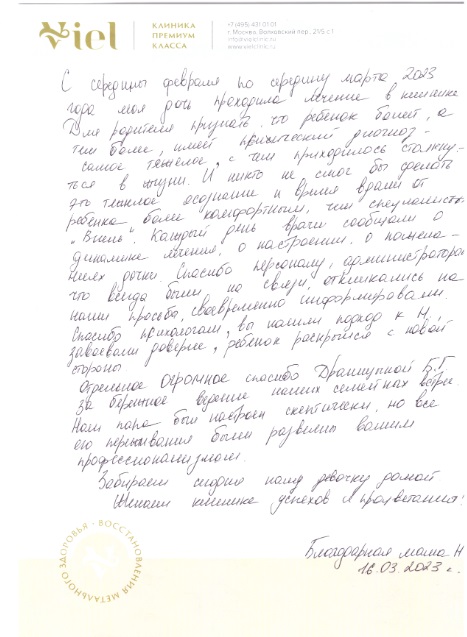 Viel
КЛИНИКА
ПРЕМИУМ
КЛАССА
+7 (495) 431 01 01
г. Москва, Волховский пер., 21/5 с1
info@vielclinic.ru
www.vielclinic.ru
С середины февраля по середину марта 2023
года моя дочь проходила лечение в клинике
Для родителя признать, что ребенок болеет, а
тем более, имеет психический диагноз -
самое тяжелое, с чем приходилось столкну-
ться в жизни. И никто не смог бы сделать
это тяжелое осознание и время врозь от
ребенка более комфортным, чем специалисты
"Виель". Каждый день врачи сообщали о
динамике лечения, о настроении, о пожела-
ниях дочки. Спасибо персоналу, администраторам
что всегда были на связи, откликались на
наши просьбы, своевременно информировали.
Спасибо психологам, вы нашли подход к Н.,
завоевали доверие, ребенок раскрылся с новой
стороны
Отдельное огромное спасибо Б.Г.
за бережное ведение наших семейных встреч.
Наш папа был настроен скептически, но все
его переживания были развеяны вашим
профессионализмом.
Забираем сегодня нашу девочку домой
Желаем клинике успехов и процветания!
Благодарная мама Н
16.03.2023 г.
ВОССТАНОВЛЕНИЯ МЕТАЛЬНОГО ЗДОРОВЬЯ